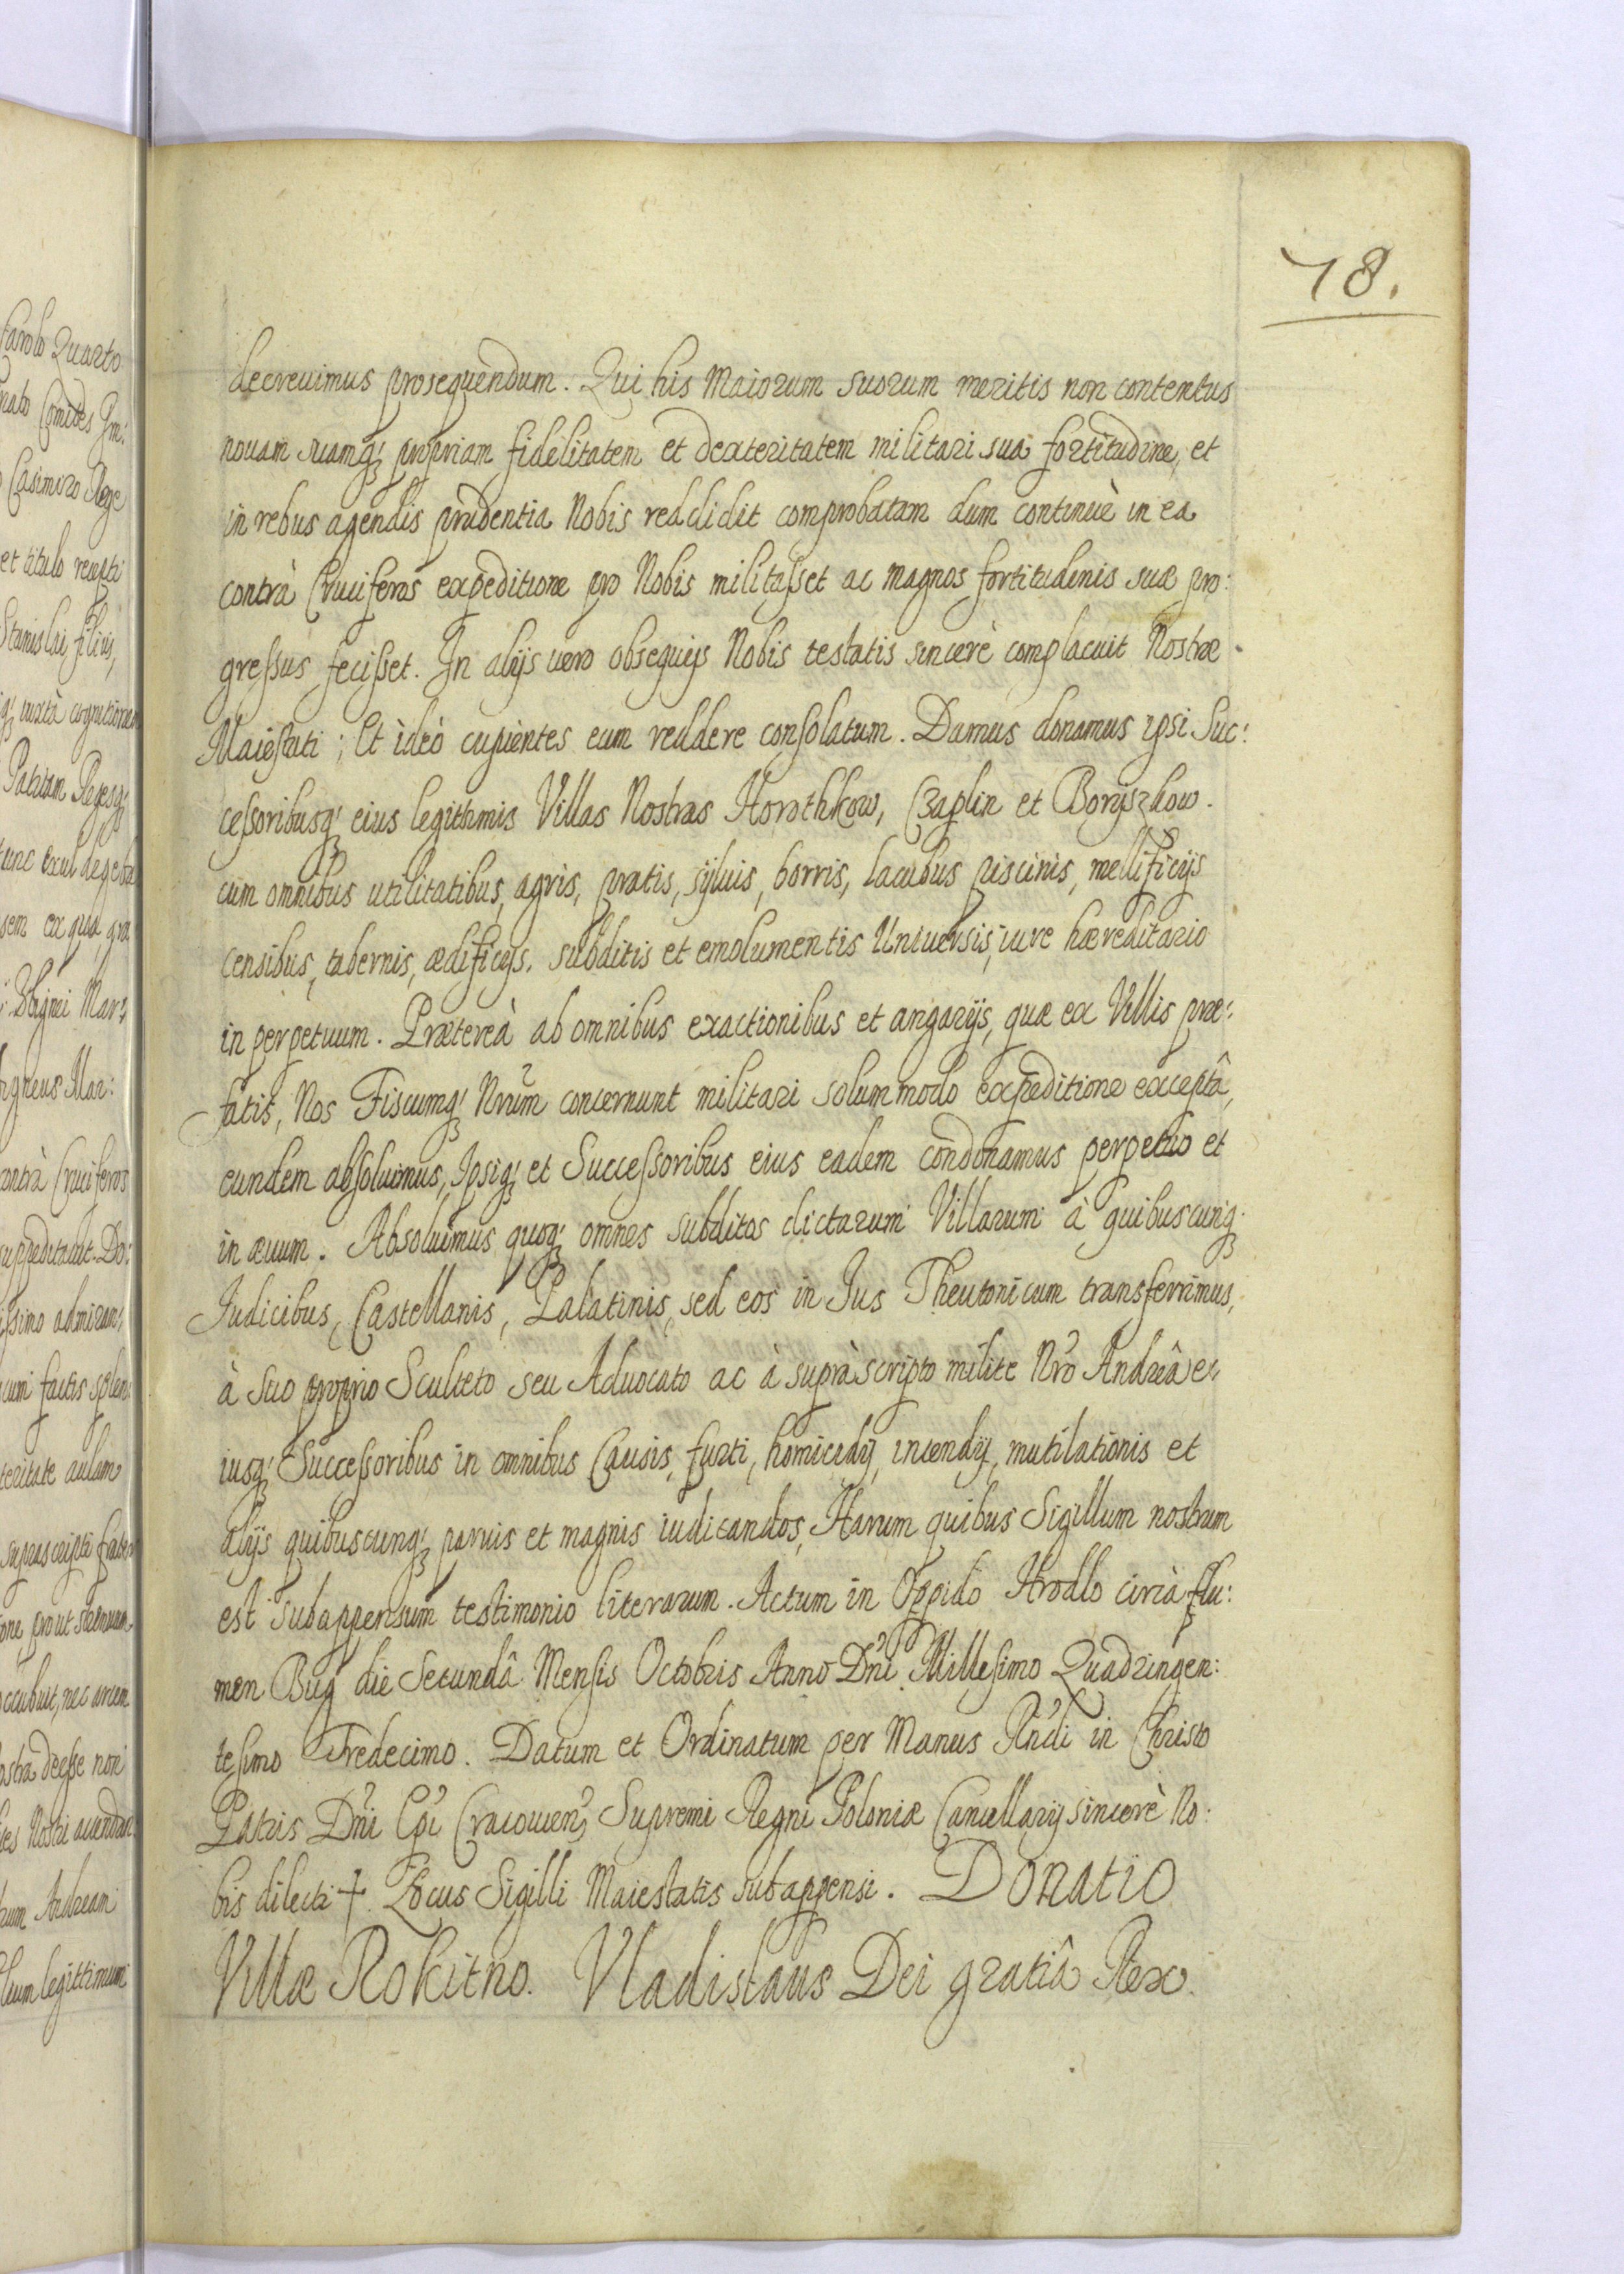 Carolo Quarto
Comites Im:
Casimiro Rege
et titulo recepti
Stanislai filius,
iuxta cognationem
Patriam Regesq;
tunc exul degeba
sem ex qua gra
Mar:
Mar:
contrà Cruciferos
suppeditarat. Do:
issimo admiran;
cum factis splen:
teritate aulam
suprascripti frater
one prout strenuum
occubuit, nec
ostra deesse non
Nostri
rum Andream
lium legittimum
78.
decreuimus prosequendum. Qui his Maiorum suorum meritis non contentus
nouam suamq; propriam fidelitatem et dexteritatem militari sua fortitudine, et
in rebus agendis prudentia Nobis reddidit comprobatam dum continuè in ea
contrà Cruciferos expeditione pro Nobis militasset ac magnos fortitudinis suæ pro:
gressus fecisset. In alijs uero obsequijs Nobis testatis sincerè complacuit Nostræ
Maiestati; Et ideò cupientes eum reddere consolatum. Damus donamus ipsi Suc:
cessoribusq; eius legithmis Villas Nostras Horothkow, Czaplin et Boryszkow.
cum omnibus utilitatibus, agris, pratis, syluis, borris, lacubus piscinis, mellificijs
censibus, tabernis, ædificijs, subditis et emolumentis Uniuersis, iure hæreditario
in perpetuum. Prætereà ab omnibus exactionibus et angarijs, quæ ex Villis præ:
fatis, Nos Fiscumq; Nrũm concernunt militari solummodo expeditione exceptâ,
eundem absoluimus, Ipsiq; et Successoribus eius eadem condonamus perpetuo et
in æuum. Absoluimus quoq; omnes subditos dictarum Villarum à quibuscunq;
Iudicibus, Castellanis, Palatinis, sed eos in Jus Theutonicum transferrimus,
à suo proprio Sculteto seu Aduocato ac à supràscripto milite Nrõ Andreâ e:
iusq; Successoribus in omnibus Causis, furti, homicidij, incendij, mutilationis et
alijs quibuscunq; paruis et magnis iudicandos, Harum quibus Sigillum nostrum
est subappensum testimonio literarum. Actum in Oppido Hrodlo circà flu:
men Bug die Secundâ Mensis Octobris Anno Dni Millesimo Quadringen:
tesimo Tredecimo. Datum et Ordinatum per Manus Rndi in Christo
Patris Dni Epi Cracouien, Supremi Regni Poloniæ Cancellarij sincerè No:
bis dilecti †. Locus Sigilli Maiestatis subappensi. Donatio
Villæ Rokitno. Vladislaus Dei gratiâ Rex.